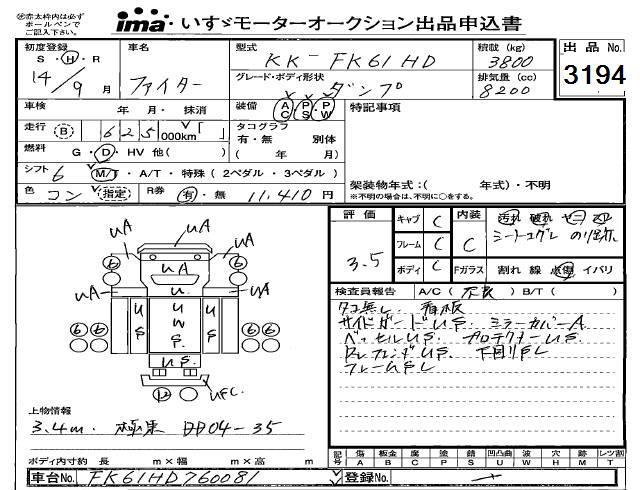 ㊟赤太枠内は必ず
ボールペンで
ご記入下さい。
ima・いすゞモーターオークション出品申込書
初度登録
S・H・R
14/9月
車名
ファイター
型式
KK-FK61HD
積載 (kg)
3800
グレード・ボディ形状
ダンプ
排気量 (cc)
8200
出品No.
3194
車検 年・月・抹消
装備 AC・PS・PW
特記事項
走行 B 625,000km「 」
タコグラフ
有・無 別体
( 年 月)
燃料 G・D・HV 他( )
シフト 6 M/T・A/T・特殊(2ペダル・3ペダル)
架装物年式:( 年式)・不明
※不明の場合は、不明に○をする。
色 コン 指定 R券 有・無 11,410円
評価
3.5
キャブ C
フレーム C
ボディ C
内装
C
Fガラス 割れ 線 点傷 イバリ
検査員報告 A/C(不良) B/T( )
タコ無し 看板
サイドガードUS ミラーカバーA
ベッセルUS プロテクターUS
下回りSL
フレームSL
UA UA
UA UA
U
UA
US UWS US
US
UFC
6 6
6 6
12
上物情報
3.4m 極東 DD04-35
ボディ内寸約 長 m×幅 m×高 m
記号 傷A 板金B 腐C 塗P 錆S 凹凸曲U 波W 穴H 跡M レツ割T
車台No. FK61HD760081
登録No.